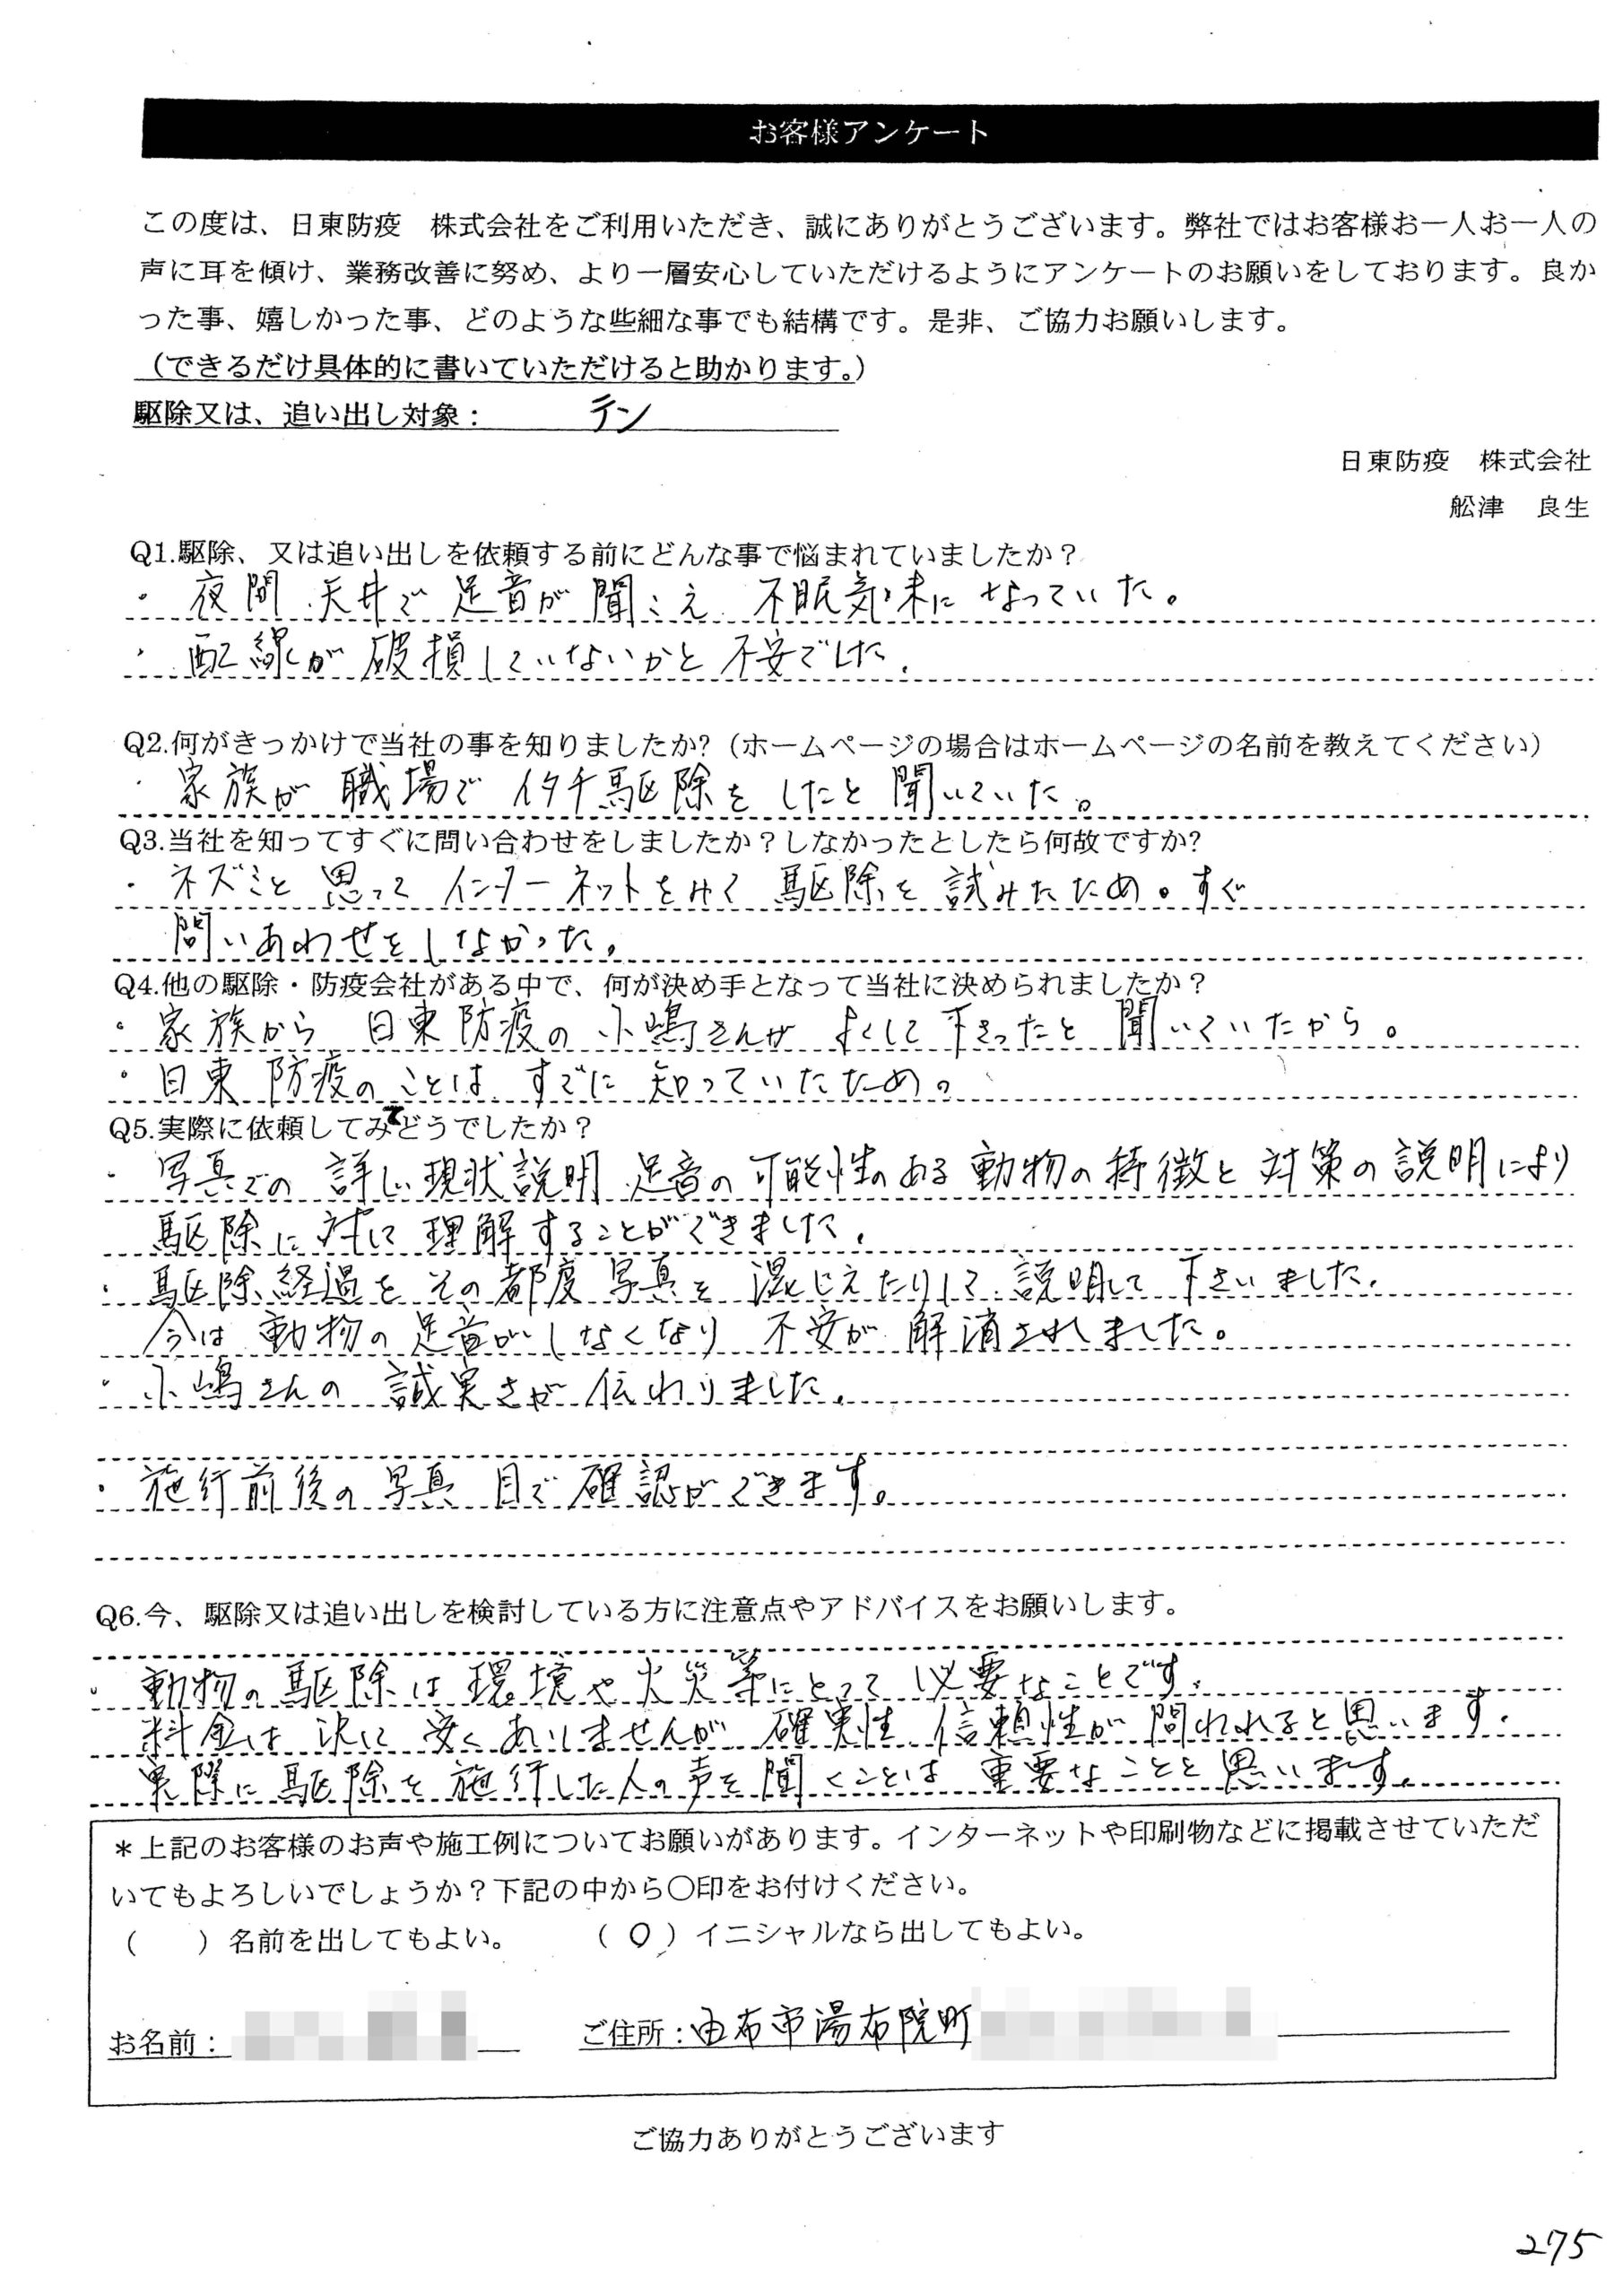 お客様アンケート
この度は、日東防疫 株式会社をご利用いただき、誠にありがとうございます。弊社ではお客様お一人お一人の
声に耳を傾け、業務改善に努め、より一層安心していただけるようにアンケートのお願いをしております。良か
った事、嬉しかった事、どのような些細な事でも結構です。是非、ご協力お願いします。
（できるだけ具体的に書いていただけると助かります。）
駆除又は、追い出し対象： テン
日東防疫 株式会社
舩津 良生
Q1.駆除、又は追い出しを依頼する前にどんな事で悩まれていましたか？
・夜間、天井で足音が聞こえ、不眠気味になっていた。
・配線が破損していないかと不安でした。
Q2.何がきっかけで当社の事を知りましたか?（ホームページの場合はホームページの名前を教えてください）
・家族が職場でイタチ駆除をしたと聞いていた。
Q3.当社を知ってすぐに問い合わせをしましたか？しなかったとしたら何故ですか?
・ネズミと思ってインターネットをみて駆除を試みたため。すぐ
問いあわせをしなかった。
Q4.他の駆除・防疫会社がある中で、何が決め手となって当社に決められましたか？
・家族から日東防疫の小嶋さんがよくして下さったと聞いていたから。
・日東防疫のことはすでに知っていたため。
Q5.実際に依頼してみてどうでしたか？
・写真での詳しい現状説明、足音の可能性のある動物の特徴と対策の説明により
駆除に対して理解することができました。
・駆除経過をその都度写真を混じえたりして説明して下さいました。
今は動物の足音がしなくなり不安が解消されました。
・小嶋さんの誠実さが伝わりました。
・施行前後の写真、目で確認ができます。
Q6.今、駆除又は追い出しを検討している方に注意点やアドバイスをお願いします。
・動物の駆除は環境や火災等にとって必要なことです。
料金は決して安くありませんが確実性、信頼性が問われれると思います。
実際に駆除を施行した人の声を聞くことは重要なことと思います。
＊上記のお客様のお声や施工例についてお願いがあります。インターネットや印刷物などに掲載させていただ
いてもよろしいでしょうか？下記の中から〇印をお付けください。
（ ）名前を出してもよい。 （〇）イニシャルなら出してもよい。
お名前： ご住所：由布市湯布院町
ご協力ありがとうございます
275